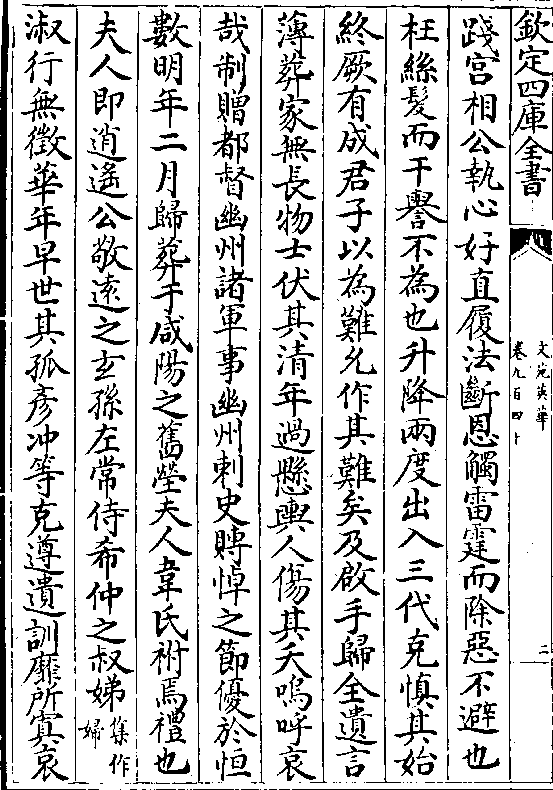 欽定四庫全書
文苑英華
卷九百四十
二
踐宫相公執心好直履法斷恩觸雷霆而除惡不避也
枉絲髮而干譽不為也升降兩度出入三代克慎其始
終厥有成君子以為難允作其難矣及啟手歸全遺言
薄葬家無長物士伏其清年過懸輿人傷其夭嗚呼哀
哉制贈都督幽州諸軍事幽州刺史賻悼之節優於恒
數明年二月歸葬于咸陽之舊塋夫人韋氏祔焉禮也
夫人即逍遙公敬遠之玄孫左常侍希仲之叔娣集作婦
淑行無徵華年早世其孤彥冲等克遵遺訓靡所寘哀